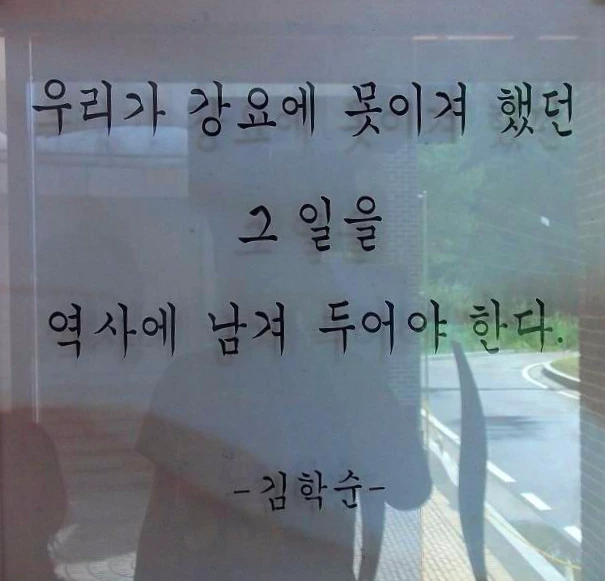 우리가 강요에 못이겨 했던
그 일을
역사에 남겨 두어야 한다.
-김학순-